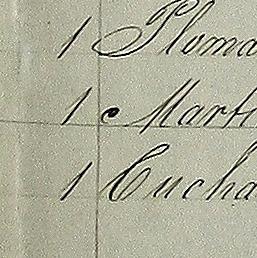 1 Ploma
1 Marti
1 Cucha